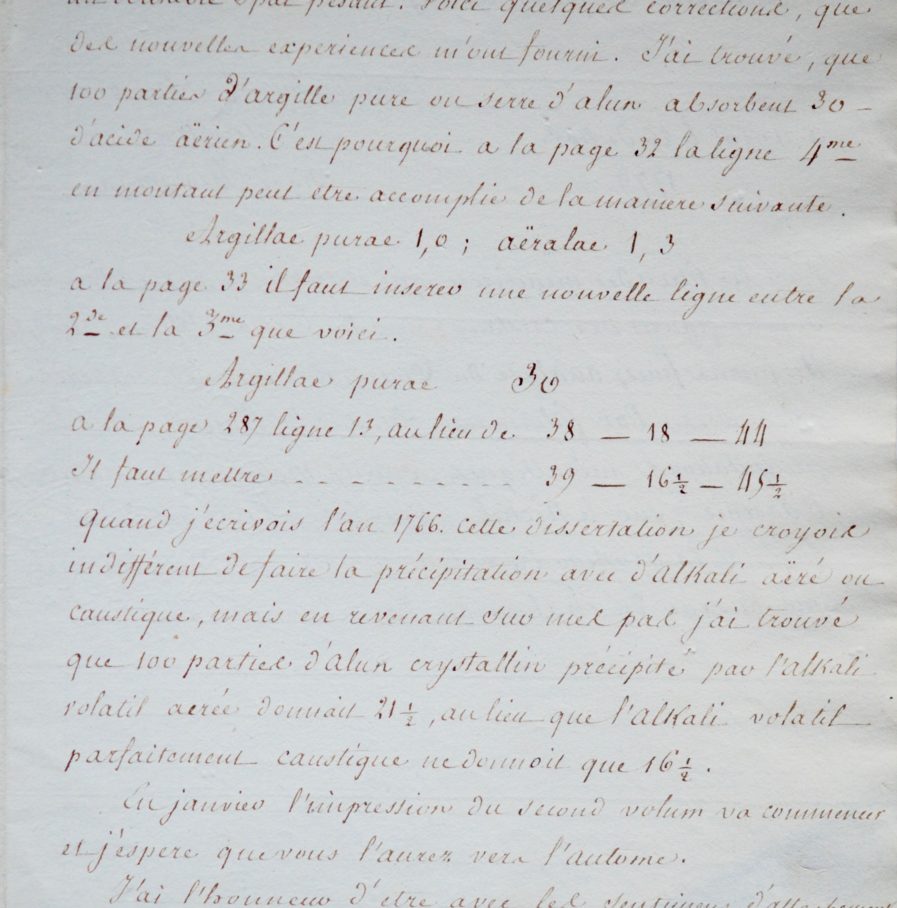 pesant. Voici quelques corrections, que
des nouvelles experiences m'ont fourni. J'ai trouvé, que
100 parties d'argille pure ou terre d'alun absorbent 30 –
d'acide aërien. C'est pourquoi a la page 32 la ligne 4me
en montant peut etre accomplie de la maniere suivante.
Argillae purae 1,0; aëratae 1,3
a la page 33 il faut inserer une nouvelle ligne entre la
2de et la 3me que voici.
Argillae purae 30
a la page 287 ligne 13, au lieu de 38 — 18 — 44
Il faut mettre - - - - - - - - 39 — 16½ — 45½
quand j'ecrivois l'an 1766. cette dissertation je croyois
indifférent de faire la précipitation avec d'alkali aëré ou
caustique, mais en revenant sur mes pas j'ai trouvé
que 100 parties d'alun crystallin précipité par l'alkali
volatil aerée donnoit 21½, au lieu que l'alkali volatil
parfaitement caustique ne donnoit que 16½.
En janvier l'impression du second volum va commencer
et j'espere que vous l'aurez vers l'automne.
J'ai l'honneur d'etre avec les sentimens d'attachement